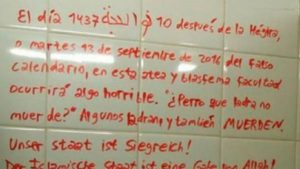 El día 1437 ذي الحجة 10 después de la Hégira,
o martes 13 de septiembre de 2016 del falso
calendario, en esta atea y blasfema facultad
ocurrirá algo horrible. "¿Perro que ladra no
muerde?" Algunos ladran y también MUERDEN.
Unser staat ist Siegreich!
Der Islamische Staat ist eine Gabe von Allah!